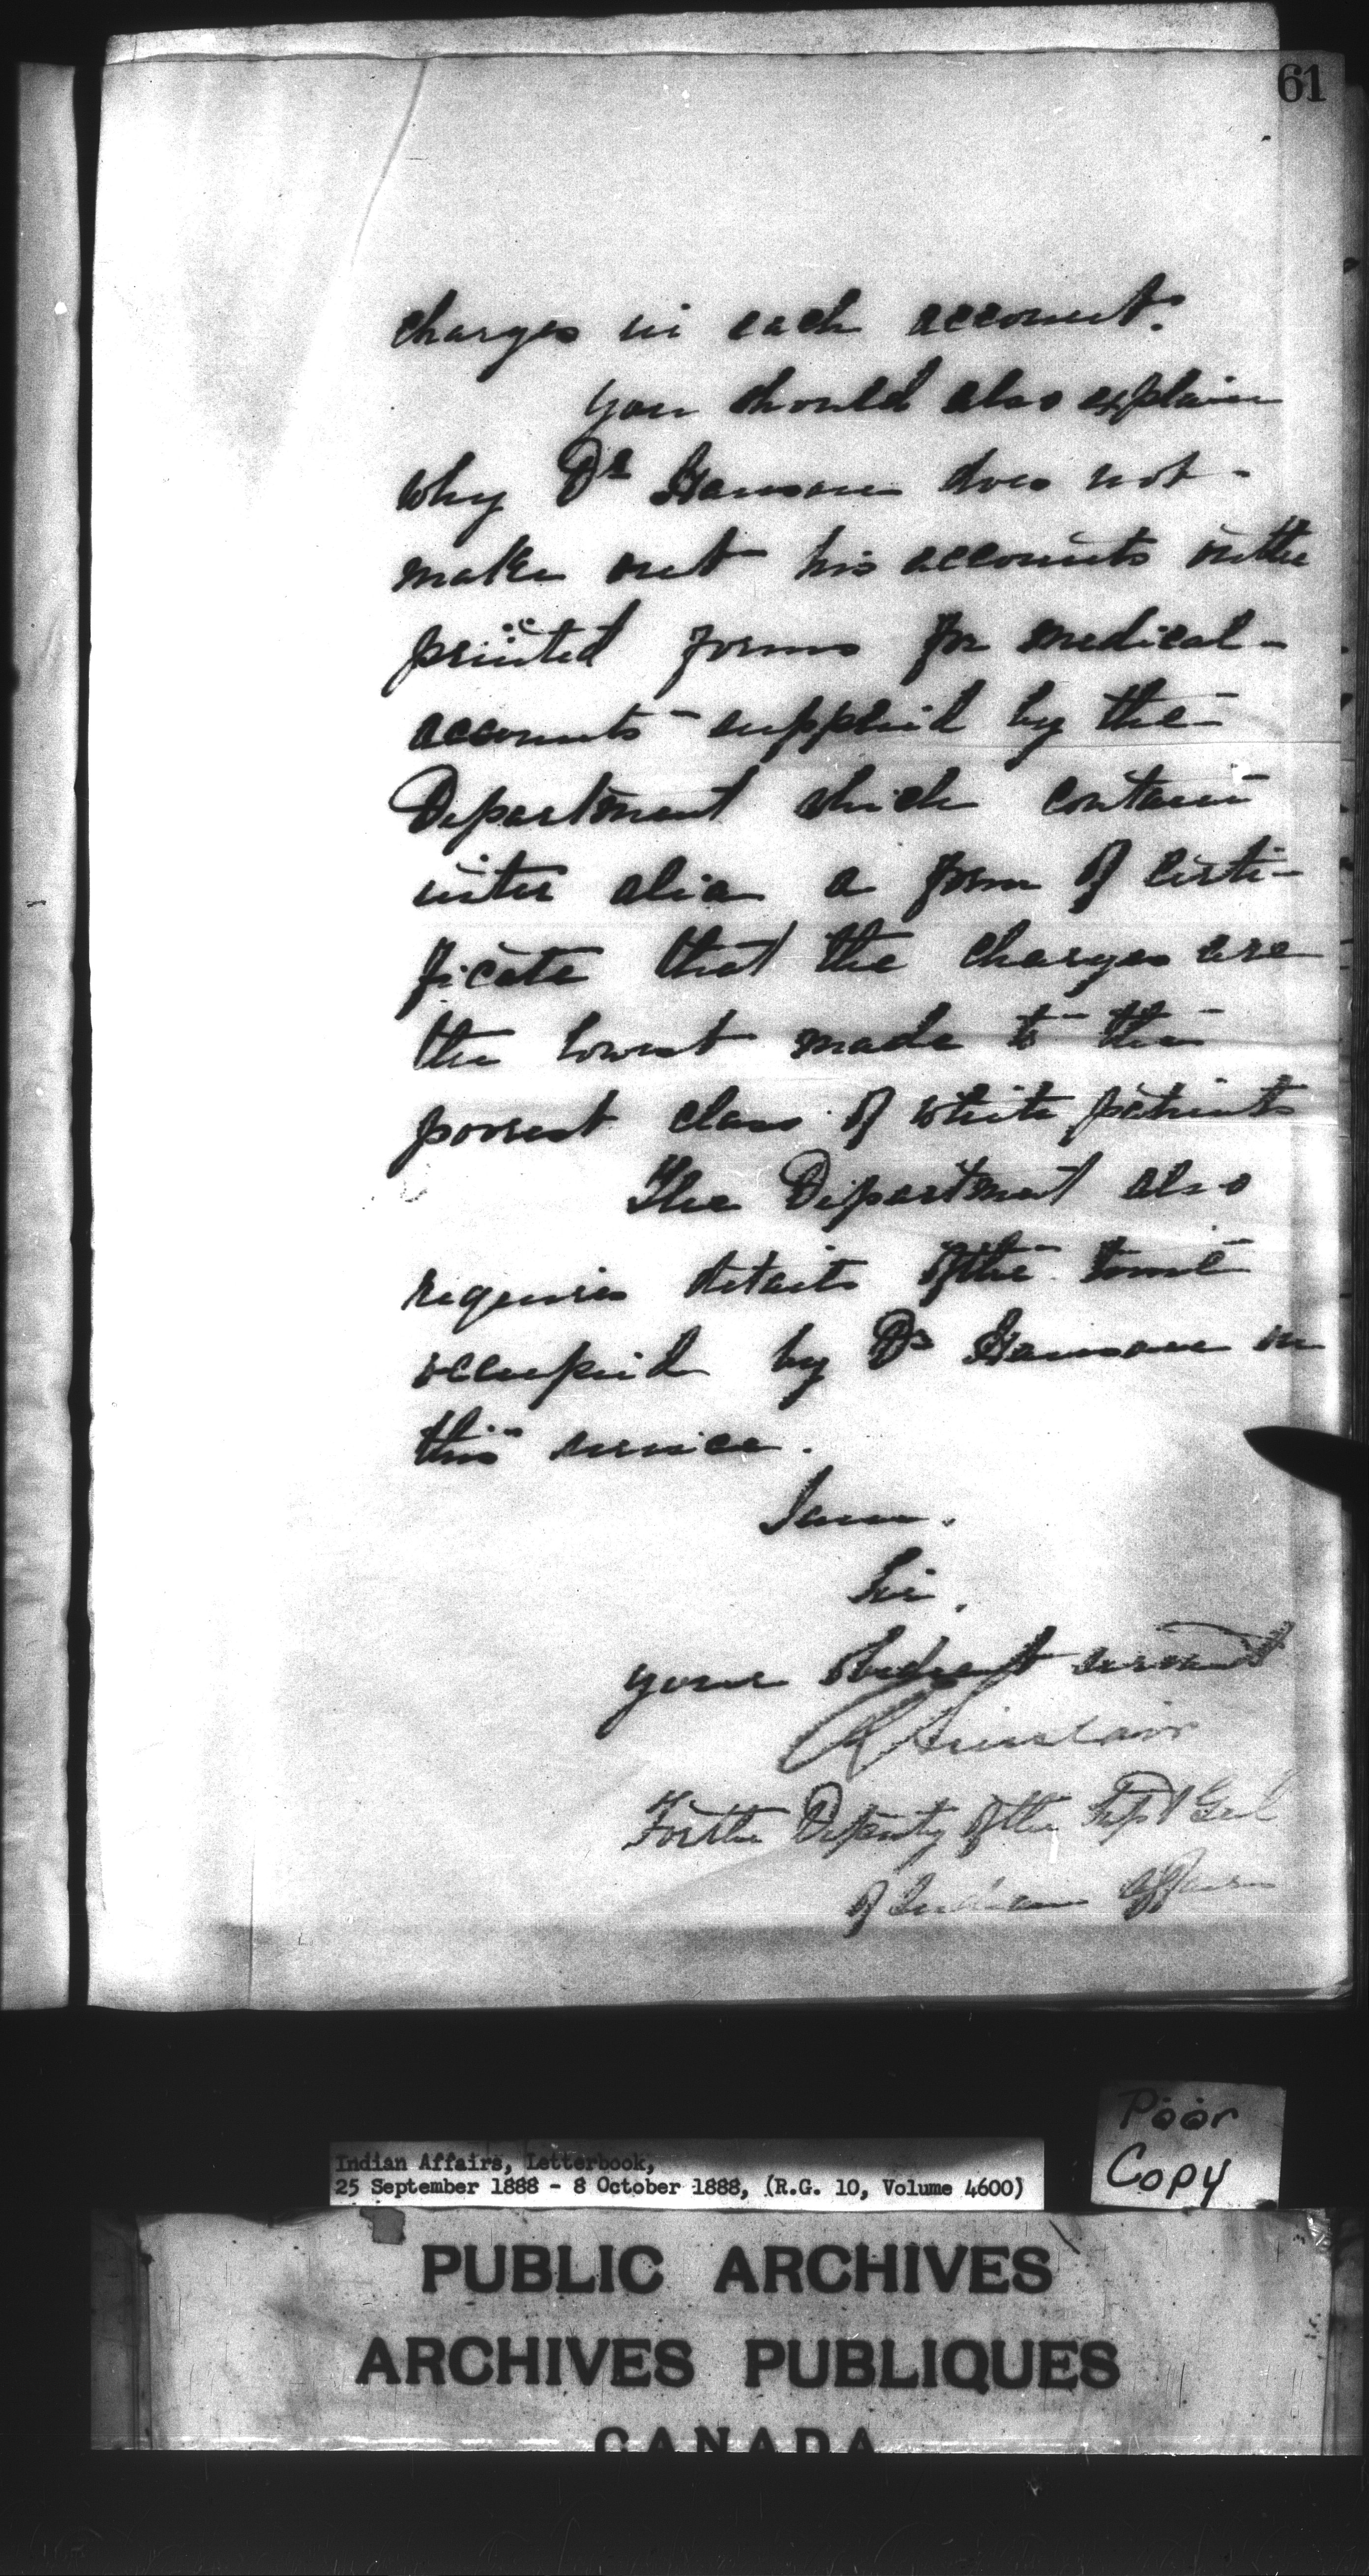 61
charges in each account.
You should also explain
why Dr does not
make out his accounts on the
printed forms for medical
accounts supplied by the
Department which contain
inter alia a form of certi-
ficate that the charges are
the lowest made to the
poorest class of white patients
The Department also
requires details of the time
occupied by Dr in
this service.
I am,
Sir,
your obedient servant
R Sinclair
For the Deputy of the Supt Genl
of Indian Affairs
Poor
Copy
Indian Affairs, Letterbook,
25 September 1888 - 8 October 1888, (R.G. 10, Volume 4600)
PUBLIC ARCHIVES
ARCHIVES PUBLIQUES
CANADA